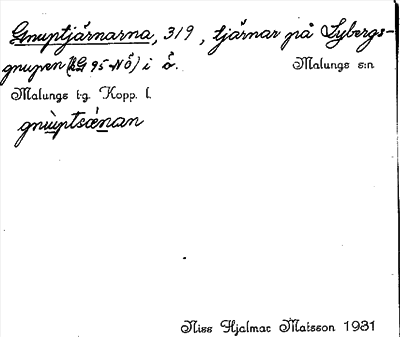 Gnuptjärnarna, 319, tjärnar på Lybergs-
gnupen (RG 95 NÖ) i ö. Malungs s:n
Malungs t-g. Kopp. l.
gnùptsǽnan
Niss Hjalmar Matsson 1931